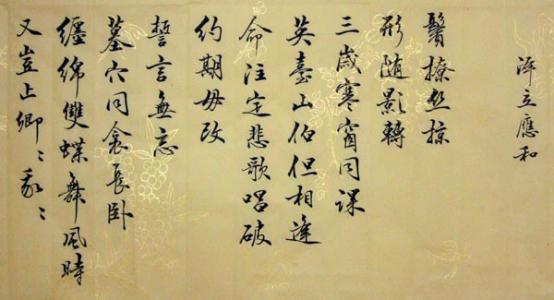 立應和
鬢撩丝掠
形随影轉
三歲寒窗同課
英臺山伯但相逢
命注定悲歌唱破
約期毋改
誓言無忘
墓穴同衾長卧
纏綿雙蝶舞風時
又豈止卿〻我〻